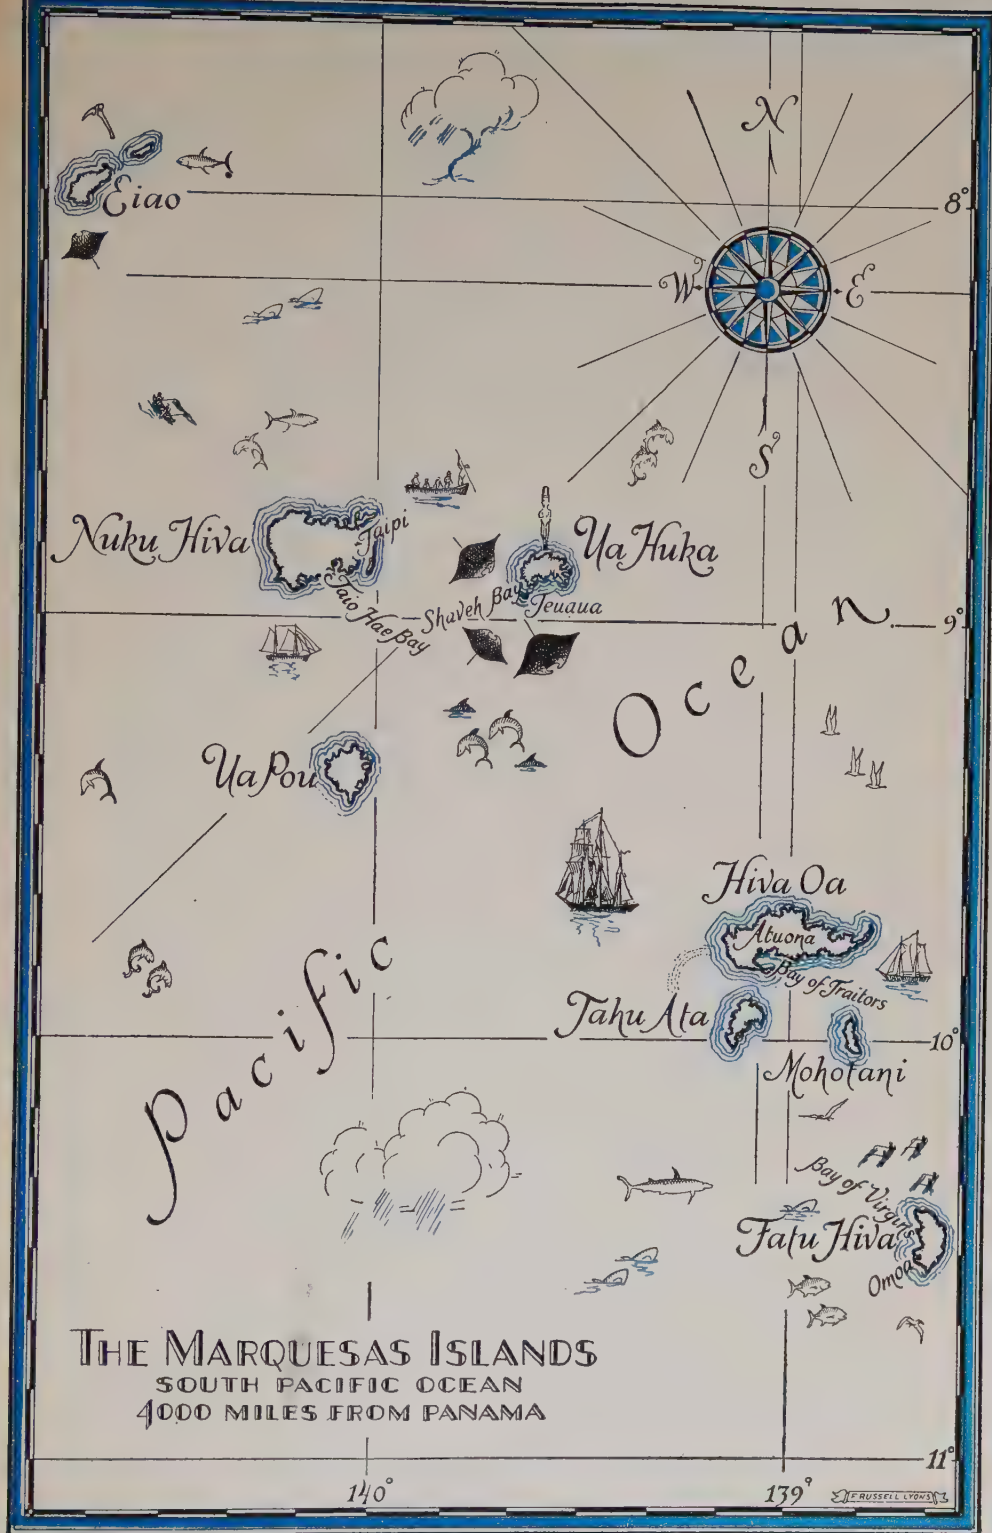 N
Eiao
8°
W
E
S
Nuku Hiva
Taipi
Ua Huka
Taio Hae Bay
Shaveh Bay
Teuaua
9°
Ocean
Ua Pou
Hiva Oa
Atuona
Bay of Traitors
Pacific
Tahu Ata
10°
Mohotani
Bay of Virgins
Fatu Hiva
Omoa
THE MARQUESAS ISLANDS
SOUTH PACIFIC OCEAN
4000 MILES FROM PANAMA
11°
140°
139°
E RUSSELL LYONS